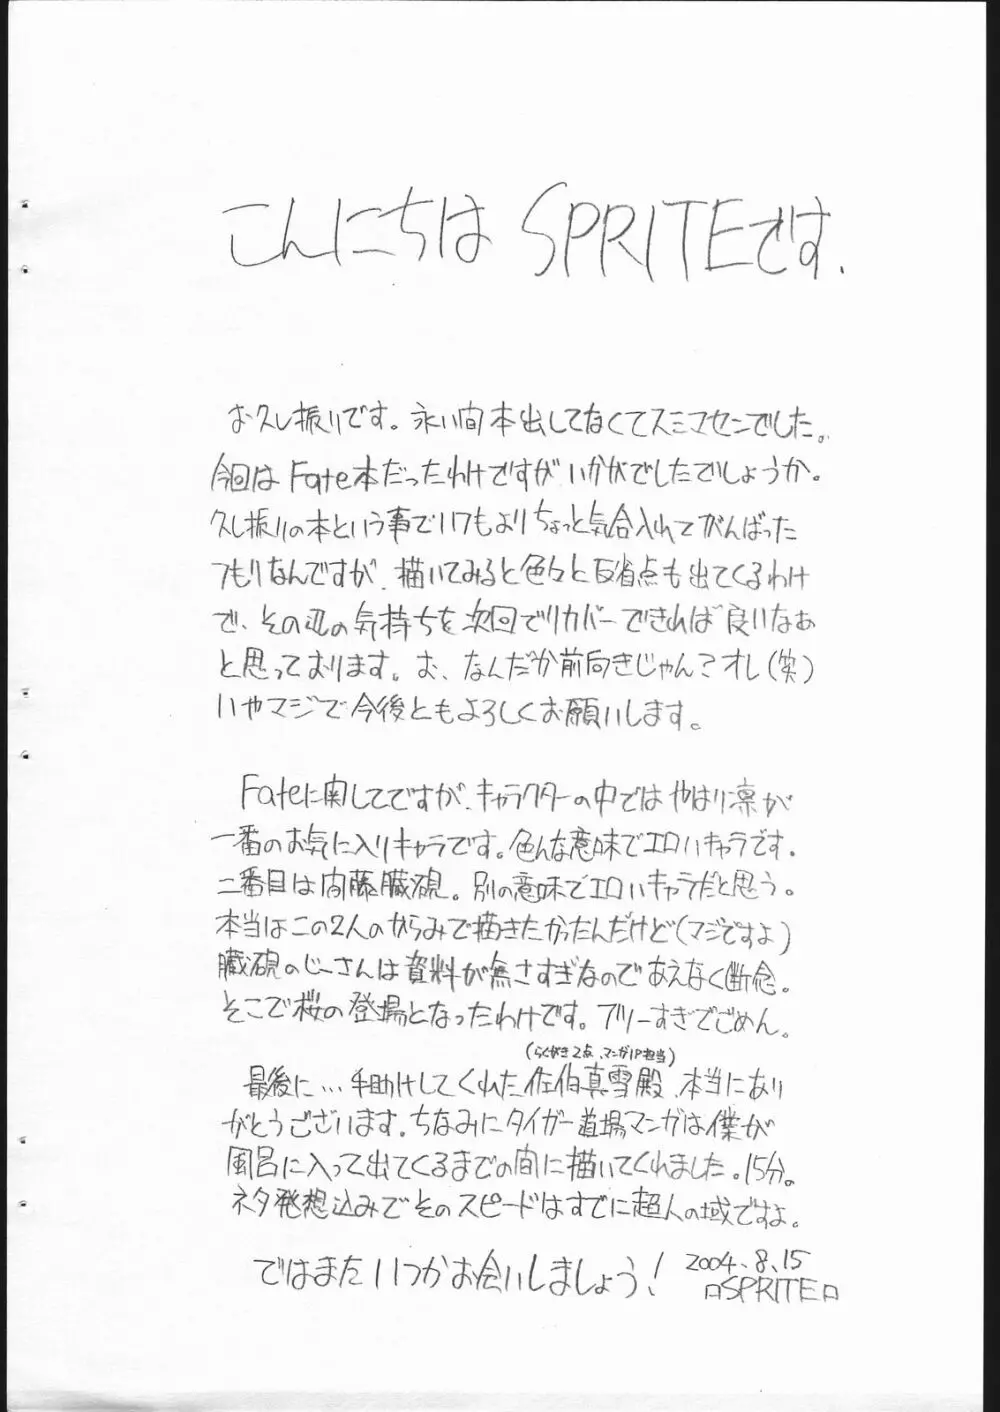 こんにちは SPRITEです.
お久し振りです。永い間本出してなくてスミマセンでした。
今回はFate本だったわけですが、いかがでしたでしょうか。
久し振りの本という事でいつもよりちょっと気合入れてがんばった
つもりなんですが、描いてみると色々と反省点も出てくるわけ
で、その辺の気持ちを次回でリカバーできれば良いなぁ
と思っております。お、なんだか前向きじゃん?オレ(笑)
いやマジで今後ともよろしくお願いします。
Fateに関してですが、キャラクターの中ではやはり凛が
一番のお気に入りキャラです。色んな意味でエロいキャラです.
二番目は間藤臓硯。別の意味でエロいキャラだと思う。
本当はこの2人のからみで描きたかったんだけど(マジですよ)
臓硯のじーさんは資料が無さすぎなのであえなく断念。
そこで桜の登場となったわけです。フツーすぎでごめん。
(らくがき2点、マンガ1P担当)
最後に…手助けしてくれた佐伯真雪殿、本当にあり
がとうございます。ちなみにタイガー道場マンガは僕が
風呂に入って出てくるまでの間に描いてくれました。15分。
ネタ発想込みでそのスピードはすでに超人の域ですよ。
ではまたいつかお会いしましょう! 2004.8.15
□SPRITE□